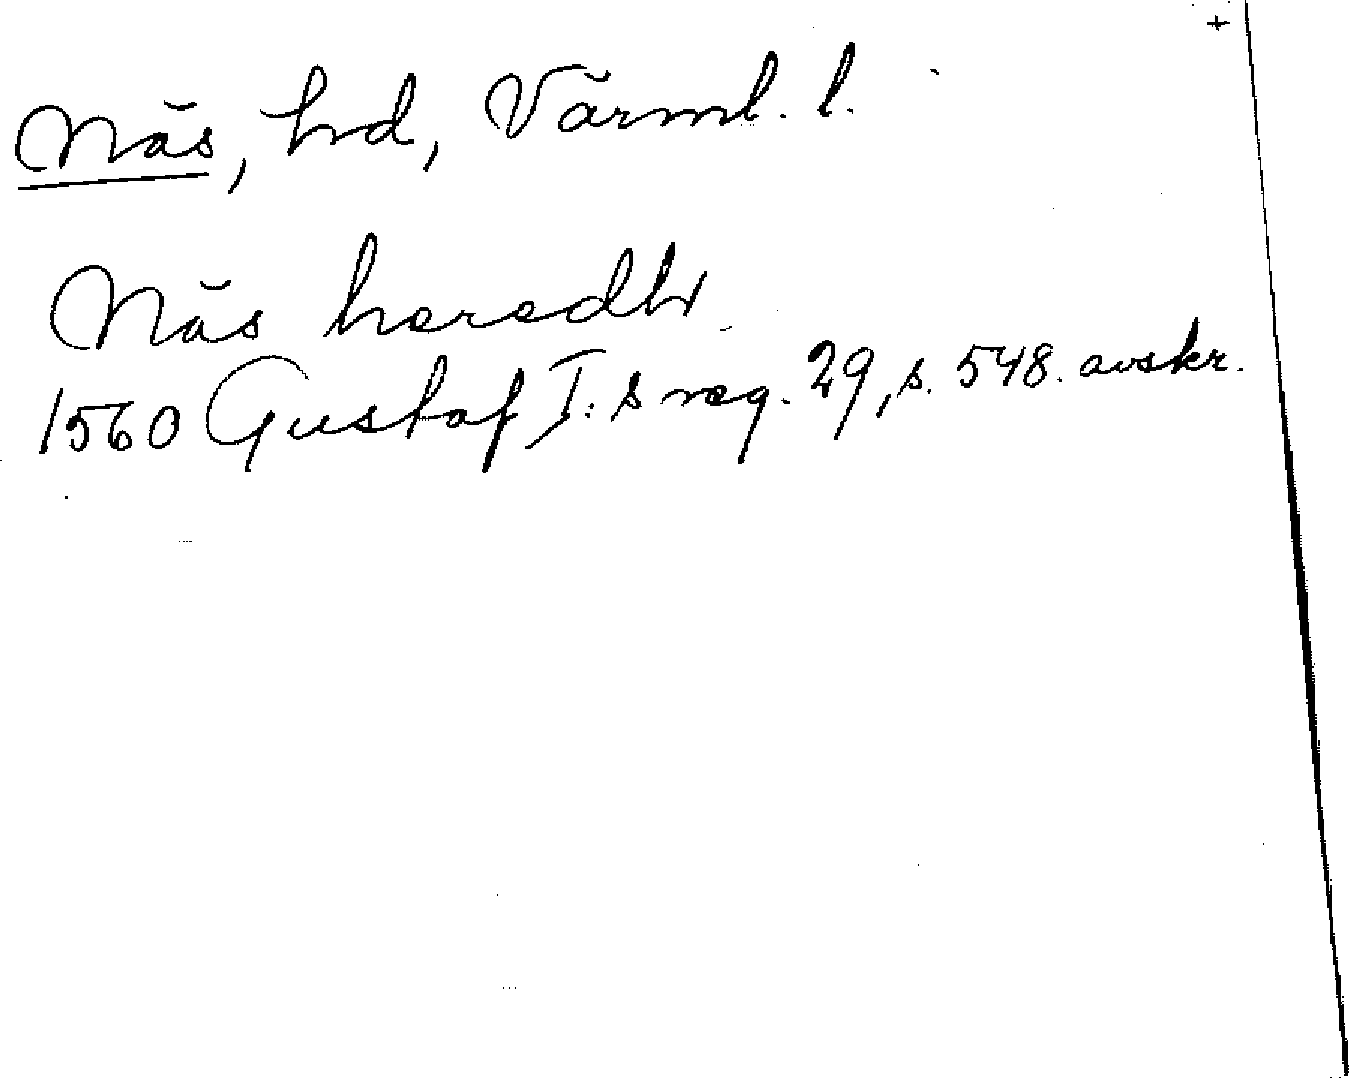 +
Näs, hrd, Värml. l.
Näs heredh
1560 Gustaf I:s reg. 29, s. 548. avskr.